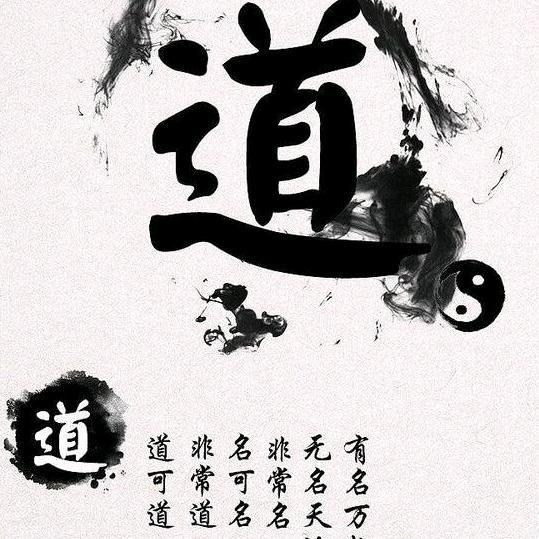 道
道
道可道
非常道
名可名
非常名
无名天
有名万